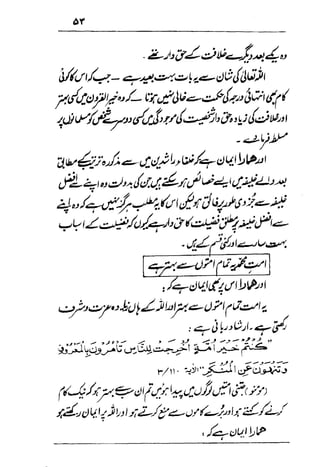 ۵۳
وہ یکے بعد دیگرے خلافت کے حق دار تھے۔
اللہ تعالیٰ کی شان سے یہ بات بہت بعید ہے — جب کہ اس کا کوئی
کام بھی انتہائی درجہ کی حکمت سے خالی نہیں ہوتا — کہ وہ خیر القرون میں کسی بہتر
اور خلافت کی زیادہ حق دار شخصیت کی موجودگی میں کسی دوسرے شخص کو مسلمانوں پر
مسلط فرمائے۔
اور ھمارا ایمان ہے کہ خلفاء راشدین میں سے مذکورہ ترتیب کے مطابق
بعد والے خلیفہ میں ایسے خصائص ہو سکتے ہیں جن کی بدولت وہ اپنے سے افضل
خلیفہ سے جزوی طور پر فائق ہو لیکن اس کا یہ مطلب ہرگز نہیں ہے کہ وہ اپنے
سے افضل خلیفہ پر مطلق فضیلت کا حق دار ہے کیوں کہ فضیلت کے اسباب
بہت سارے اور کئی قسم کے ہیں۔
امتِ محمدیہ تمام امتوں سے بہتر ہے
اور ھمارا اس پر بھی ایمان ہے کہ:
یہ امت تمام امتوں سے بہتر اور اللہ کے ہاں زیادہ عزت و شرف
رکھتی ہے۔ ارشاد ربانی ہے:
"كُنْتُمْ خَيْرَ أُمَّةٍ أُخْرِجَتْ لِلنَّاسِ تَأْمُرُوْنَ بِالْمَعْرُوْفِ
وَتَنْهَوْنَ عَنِ الْمُنْكَرِ" الآیۃ ۳/۱۱۰
(مومنو) جتنی امتیں لوگوں میں پیدا ہوئیں تم ان سے بہتر ہو کہ نیک کام
کرنے کو کہتے ہو اور برے کاموں سے منع کرتے ہو اور اللہ پر ایمان رکھتے ہو
ھمارا ایمان ہے کہ: